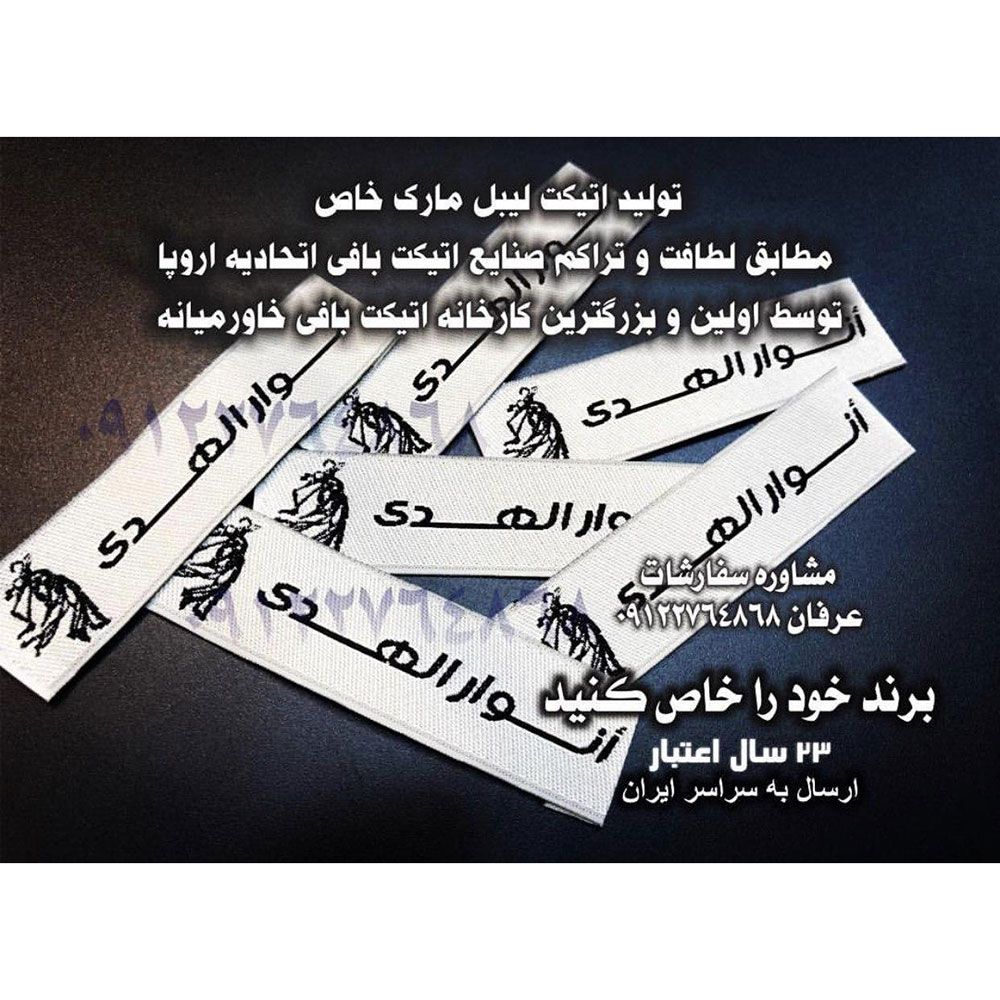 تولید اتیکت لیبل مارک خاص
مطابق لطافت و تراکم صنایع اتیکت بافی اتحادیه اروپا
توسط اولین و بزرگترین کارخانه اتیکت بافی خاورمیانه
أنـوار الهـدى
ـوار الهـدى
ـوار الهـدى
ـوار الهـدى
أنـوار الهـدى
أنـوار الهـدى
۰۹۱۲۲۷۶٤۸۶۸
۰۹۱۲۲۷۶٤۸۶۸
مشاوره سفارشات
عرفان ۰۹۱۲۲۷۶٤۸۶۸
برند خود را خاص کنید
۲۳ سال اعتبار
ارسال به سراسر ایران